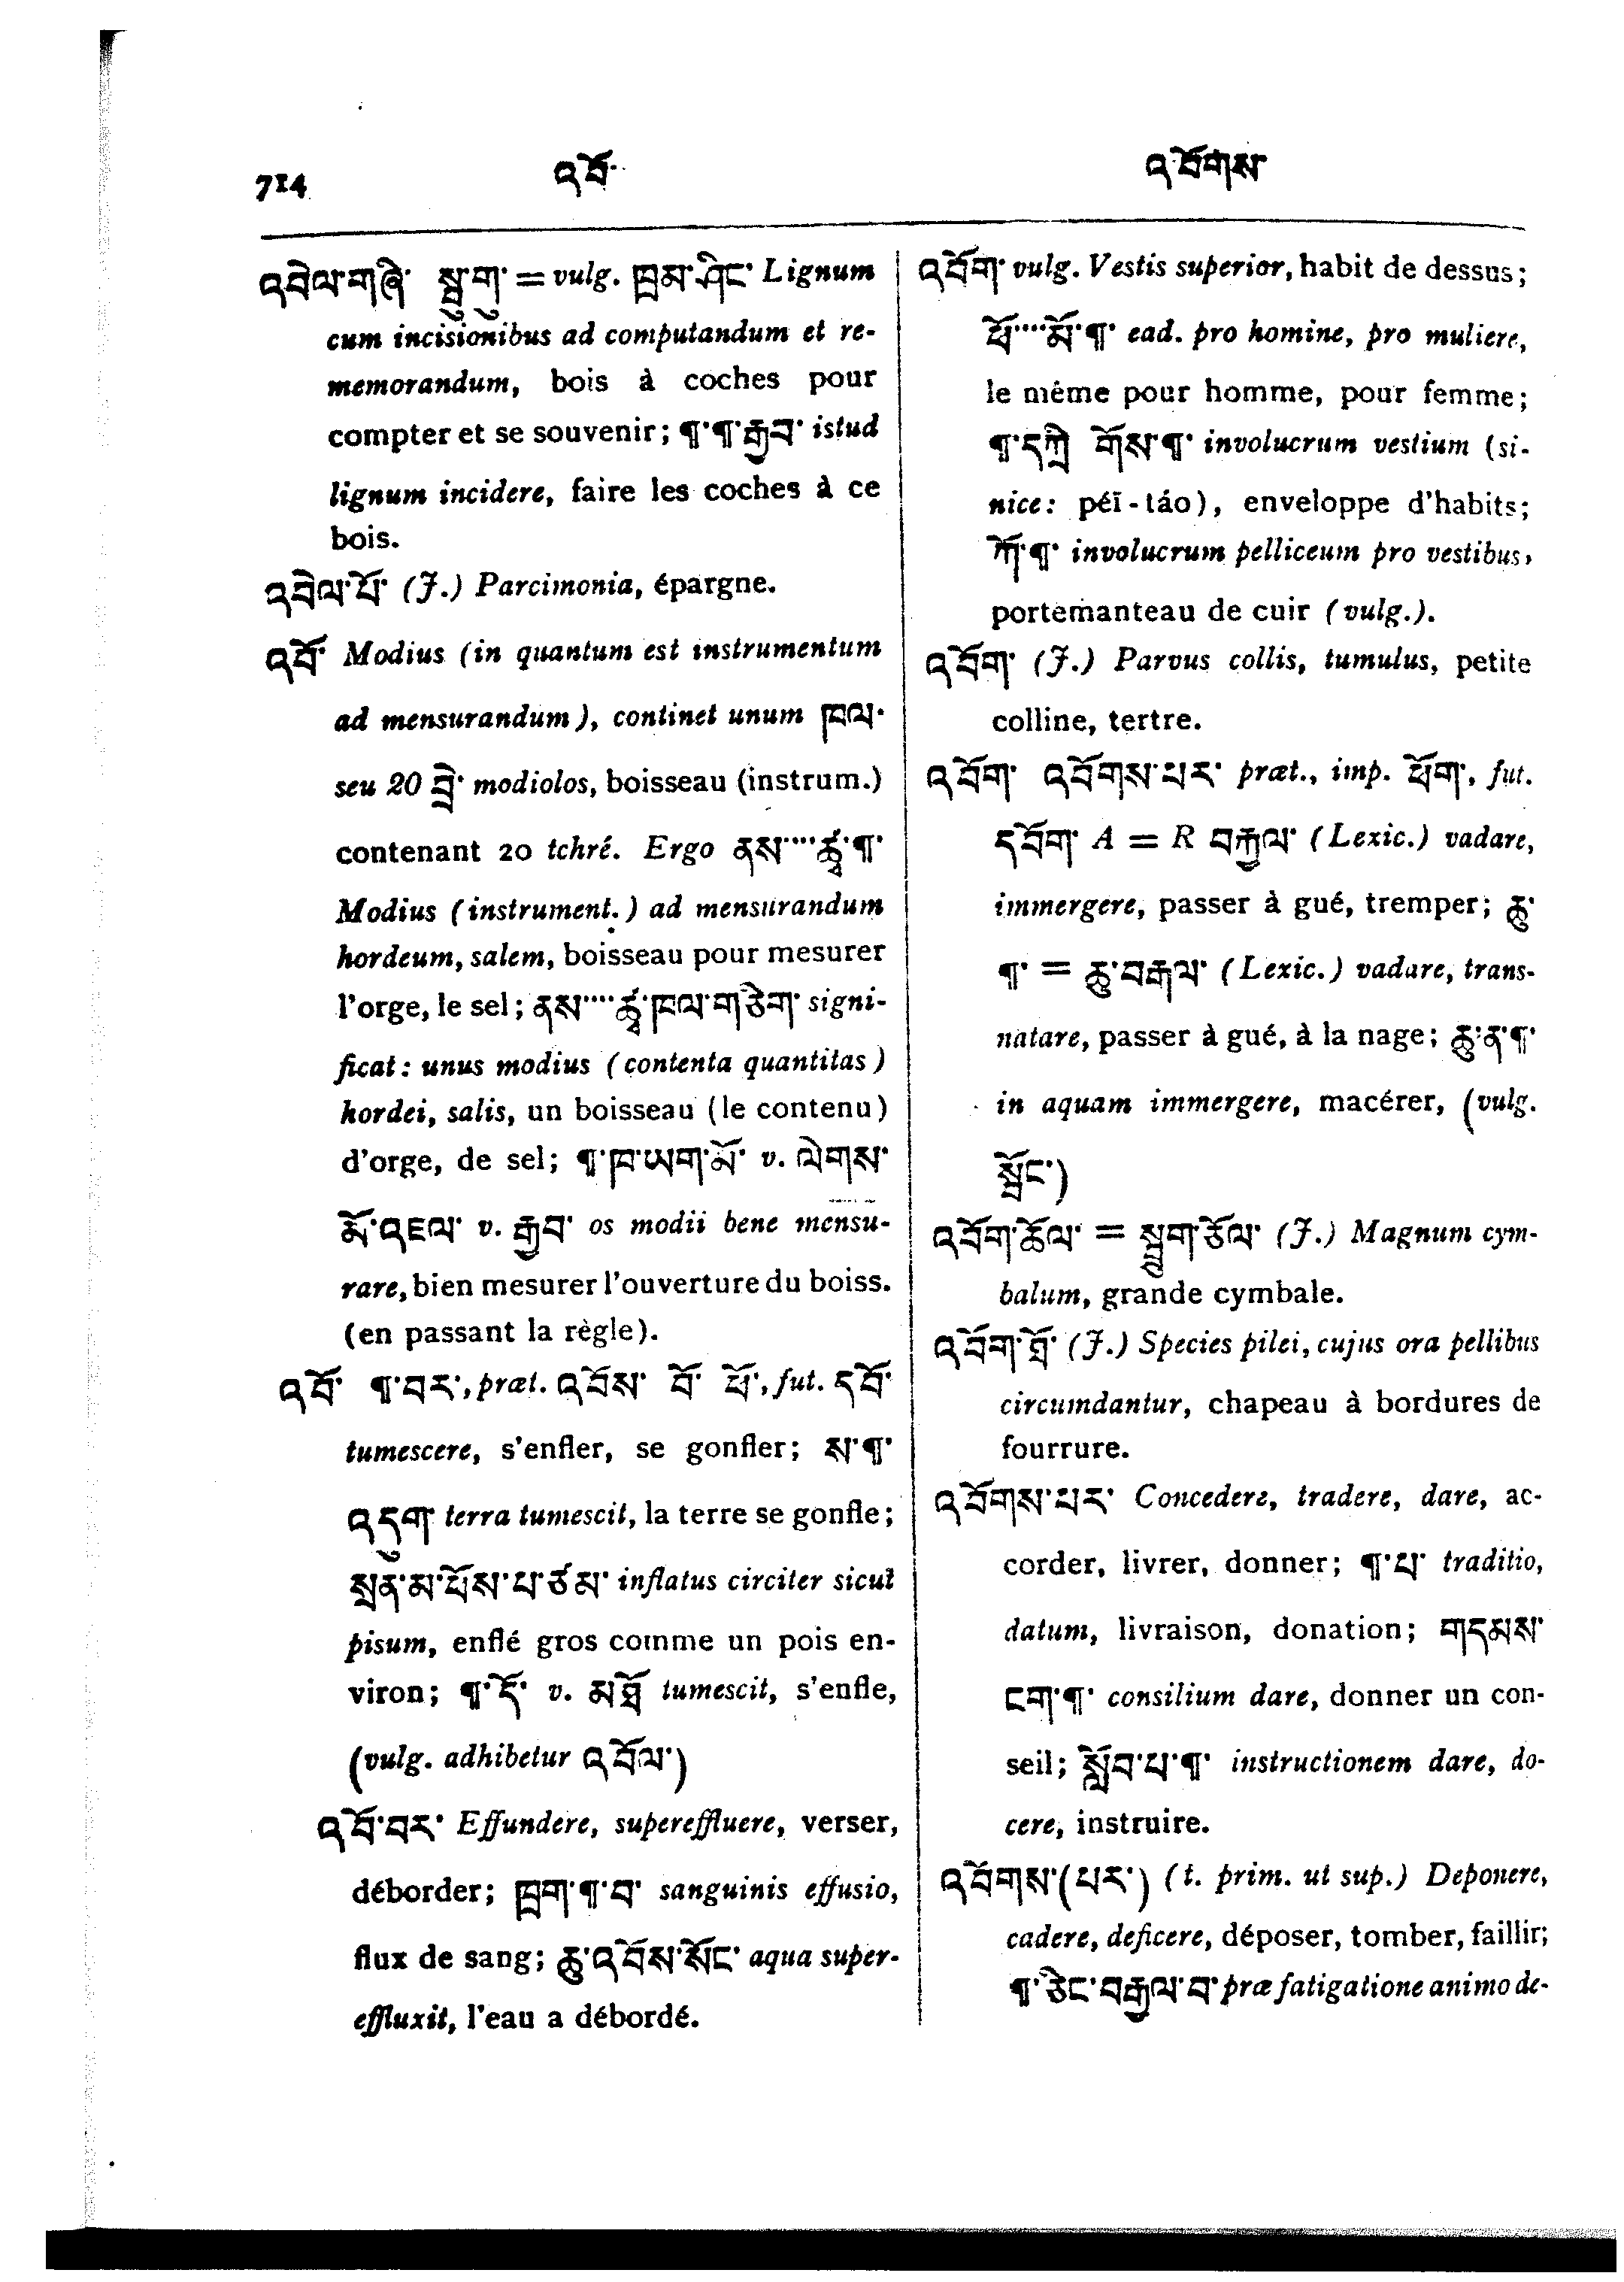 714
འབོ་
འབོགས་
འབེལ་གཞི་ སྦྲུ་གུ་ = vulg. ཁྲམ་ཤིང་ Lignum
cum incisionibus ad computandum et re-
memorandum, bois à coches pour
compter et se souvenir; ¶་¶་རྒྱབ་ istud
lignum incidere, faire les coches à ce
bois.
འབེལ་པོ་ (J.) Parcimonia, épargne.
འབོ་ Modius (in quantum est instrumentum
ad mensurandum), continet unum ཁལ་
seu 20 བྲེ་ modiolos, boisseau (instrum.)
contenant 20 tchré. Ergo ནས་····ཚྭ་¶་
Modius (instrument.) ad mensurandum
hordeum, salem, boisseau pour mesurer
l'orge, le sel; ནས་····ཚྭ་ཁལ་གཅིག་ signi-
ficat: unus modius (contenta quantitas)
hordei, salis, un boisseau (le contenu)
d'orge, de sel; ¶་ཁ་ཡག་མོ་ v. ལེགས་
མོ་འཇལ་ v. རྒྱབ་ os modii bene mensu-
rare, bien mesurer l'ouverture du boiss.
(en passant la règle).
འབོ་ ¶་བར་, præt. འབོས་ བོ་ ཕོ་, fut. དབོ་
tumescere, s'enfler, se gonfler; ས་¶་
འདུག་ terra tumescit, la terre se gonfle;
སྲན་མ་པོས་པ་ཙམ་ inflatus circiter sicut
pisum, enflé gros comme un pois en-
viron; ¶་དོ་ v. མཐོ་ tumescit, s'enfle,
(vulg. adhibetur འབོལ་)
འབོ་བར་ Effundere, supereffluere, verser,
déborder; ཁྲག་¶་བ་ sanguinis effusio,
flux de sang; ཆུ་འབོས་སོང་ aqua super-
effluxit, l'eau a débordé.
འབོག་ vulg. Vestis superior, habit de dessus;
ཕོ་····མོ་¶་ ead. pro homine, pro muliere,
le même pour homme, pour femme;
¶་དཀྲི་ གོས་¶་ involucrum vestium (si-
nice: péi-táo), enveloppe d'habits;
ཀོ་¶་ involucrum pelliceum pro vestibus,
portemanteau de cuir (vulg.).
འབོག་ (J.) Parvus collis, tumulus, petite
colline, tertre.
འབོག་ འབོགས་པར་ præt., imp. ཕོག་, fut.
དབོག་ A = R བརྐྱལ་ (Lexic.) vadare,
immergere, passer à gué, tremper; ཆུ་
¶་ = ཆུ་བརྒལ་ (Lexic.) vadare, trans-
natare, passer à gué, à la nage; ཆུ་ན་¶་
in aquam immergere, macérer, (vulg.
སྦོང་)
འབོག་ཆོལ་ = སྦུག་ཆོལ་ (J.) Magnum cym-
balum, grande cymbale.
འབོག་ཐོ་ (J.) Species pilei, cujus ora pellibus
circumdantur, chapeau à bordures de
fourrure.
འབོགས་པར་ Concedere, tradere, dare, ac-
corder, livrer, donner; ¶་པ་ traditio,
datum, livraison, donation; གདམས་
ངག་¶་ consilium dare, donner un con-
seil; སློབ་པ་¶་ instructionem dare, do-
cere, instruire.
འབོགས་(པར་) (t. prim. ut sup.) Deponere,
cadere, deficere, déposer, tomber, faillir;
¶་ཅིང་བརྒྱལ་བ་ præ fatigatione animo de-